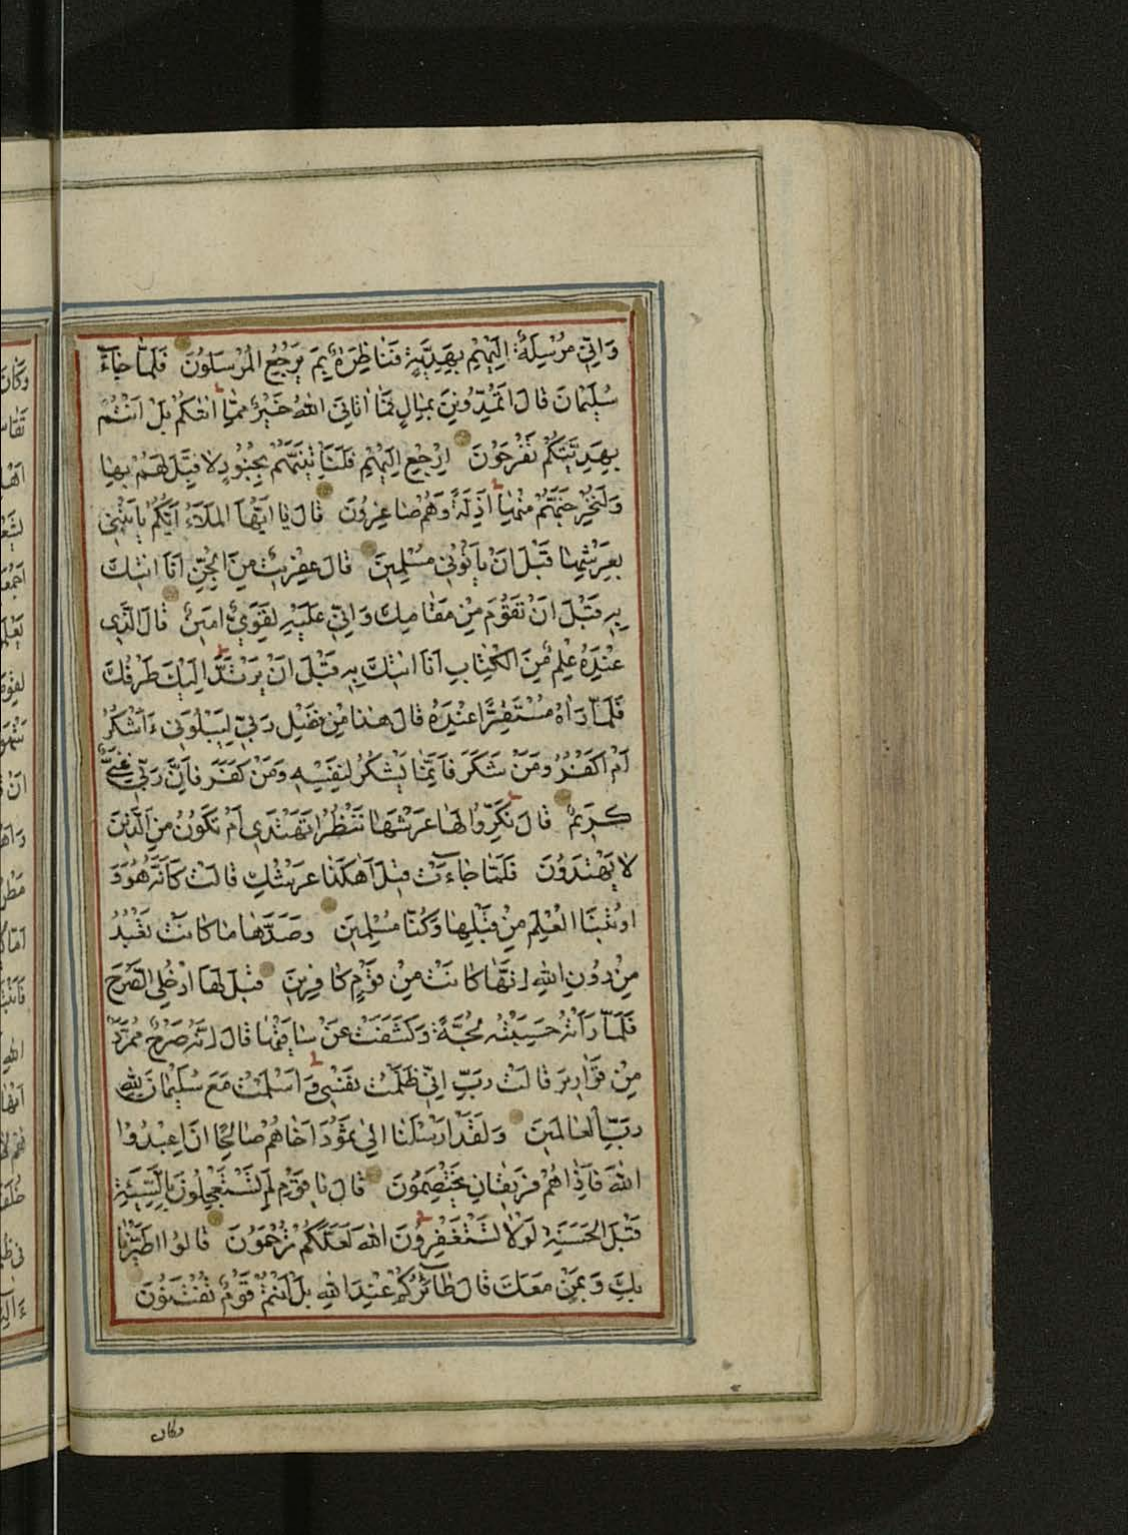 وَاِنّي مُرْسِلَةٌ اِلَيْهِمْ بِهَدِيَّةٍ فَنَاظِرَةٌ بِمَ يَرْجِعُ الْمُرْسَلُونَ فَلَمَّا جَاءَ
سُلَيْمَانَ قَالَ اَتُمِدُّونَنِ بِمَالٍ فَمَا اٰتَانِيَ اللهُ خَيْرٌ مِمَّا اٰتٰيكُمْ بَلْ اَنْتُمْ
بِهَدِيَّتِكُمْ تَفْرَحُونَ اِرْجِعْ اِلَيْهِمْ فَلَنَأْتِيَنَّهُمْ بِجُنُودٍ لَا قِبَلَ لَهُمْ بِهَا
وَلَنُخْرِجَنَّهُمْ مِنْهَا اَذِلَّةً وَهُمْ صَاغِرُونَ قَالَ يَا اَيُّهَا الْمَلَاُ اَيُّكُمْ يَأْتِينِي
بِعَرْشِهَا قَبْلَ اَنْ يَأْتُونِي مُسْلِمِينَ قَالَ عِفْرِيتٌ مِنَ الْجِنِّ اَنَا اٰتِيكَ
بِهِ قَبْلَ اَنْ تَقُومَ مِنْ مَقَامِكَ وَاِنّي عَلَيْهِ لَقَوِيٌّ اَمِينٌ قَالَ الَّذِي
عِنْدَهُ عِلْمٌ مِنَ الْكِتَابِ اَنَا اٰتِيكَ بِهِ قَبْلَ اَنْ يَرْتَدَّ اِلَيْكَ طَرْفُكَ
فَلَمَّا رَاٰهُ مُسْتَقِرًّا عِنْدَهُ قَالَ هٰذَا مِنْ فَضْلِ رَبِّي لِيَبْلُوَنِي ءَاَشْكُرُ
اَمْ اَكْفُرُ وَمَنْ شَكَرَ فَاِنَّمَا يَشْكُرُ لِنَفْسِهِ وَمَنْ كَفَرَ فَاِنَّ رَبِّي غَنِيٌّ
كَرِيمٌ قَالَ نَكِّرُوا لَهَا عَرْشَهَا نَنْظُرْ اَتَهْتَدِي اَمْ تَكُونُ مِنَ الَّذِينَ
لَا يَهْتَدُونَ فَلَمَّا جَاءَتْ قِيلَ اَهٰكَذَا عَرْشُكِ قَالَتْ كَاَنَّهُ هُوَ وَ
اُوتِينَا الْعِلْمَ مِنْ قَبْلِهَا وَكُنَّا مُسْلِمِينَ وَصَدَّهَا مَا كَانَتْ تَعْبُدُ
مِنْ دُونِ اللهِ اِنَّهَا كَانَتْ مِنْ قَوْمٍ كَافِرِينَ قِيلَ لَهَا ادْخُلِي الصَّرْحَ
فَلَمَّا رَاَتْهُ حَسِبَتْهُ لُجَّةً وَكَشَفَتْ عَنْ سَاقَيْهَا قَالَ اِنَّهُ صَرْحٌ مُمَرَّدٌ
مِنْ قَوَارِيرَ قَالَتْ رَبِّ اِنّي ظَلَمْتُ نَفْسِي وَاَسْلَمْتُ مَعَ سُلَيْمَانَ لِلهِ
رَبِّ الْعَالَمِينَ وَلَقَدْ اَرْسَلْنَا اِلٰى ثَمُودَ اَخَاهُمْ صَالِحًا اَنِ اعْبُدُوا
اللهَ فَاِذَا هُمْ فَرِيقَانِ يَخْتَصِمُونَ قَالَ يَا قَوْمِ لِمَ تَسْتَعْجِلُونَ بِالسَّيِّئَةِ
قَبْلَ الْحَسَنَةِ لَوْلَا تَسْتَغْفِرُونَ اللهَ لَعَلَّكُمْ تُرْحَمُونَ قَالُوا اطَّيَّرْنَا
بِكَ وَبِمَنْ مَعَكَ قَالَ طَائِرُكُمْ عِنْدَ اللهِ بَلْ اَنْتُمْ قَوْمٌ تُفْتَنُونَ
وكان